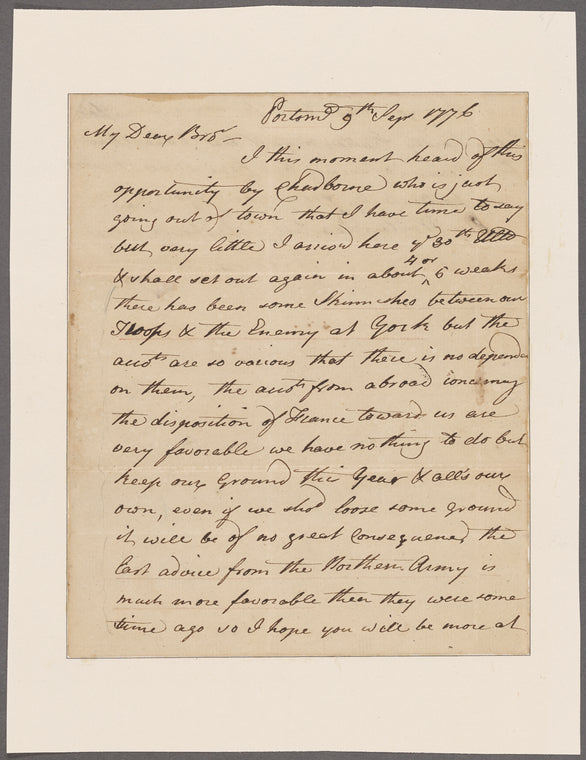 Portsmo 9th Sepr 1776
My Dear Bror —
I this moment heard of this
opportunity by Chadborne who is just
going out of town that I have time to say
but very little I arriv'd here ye 30th Ulto
& shall set out again in about 4 or 6 weeks
there has been some Skirmishes between our
Troops & the Enemy at York but the
accots are so various that there is no dependce
on them, the accots from abroad concerning
the disposition of France toward us are
very favorable we have nothing to do but
keep our Ground this Year & all's our
own, even if we shod loose some ground
it will be of no great Consequence, the
last advice from the Northern Army is
much more favorable then they were some
time ago so I hope you will be more at